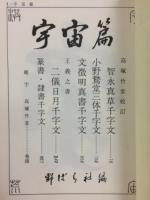 宇宙篇
高塚竹堂校訂
智永真草千字文
小野鵞堂三体千字文
文徴明真書千字文
王羲之書
二儀日月千字文
篆書・隷書千字文
題字 高塚竹堂
野ばら社編